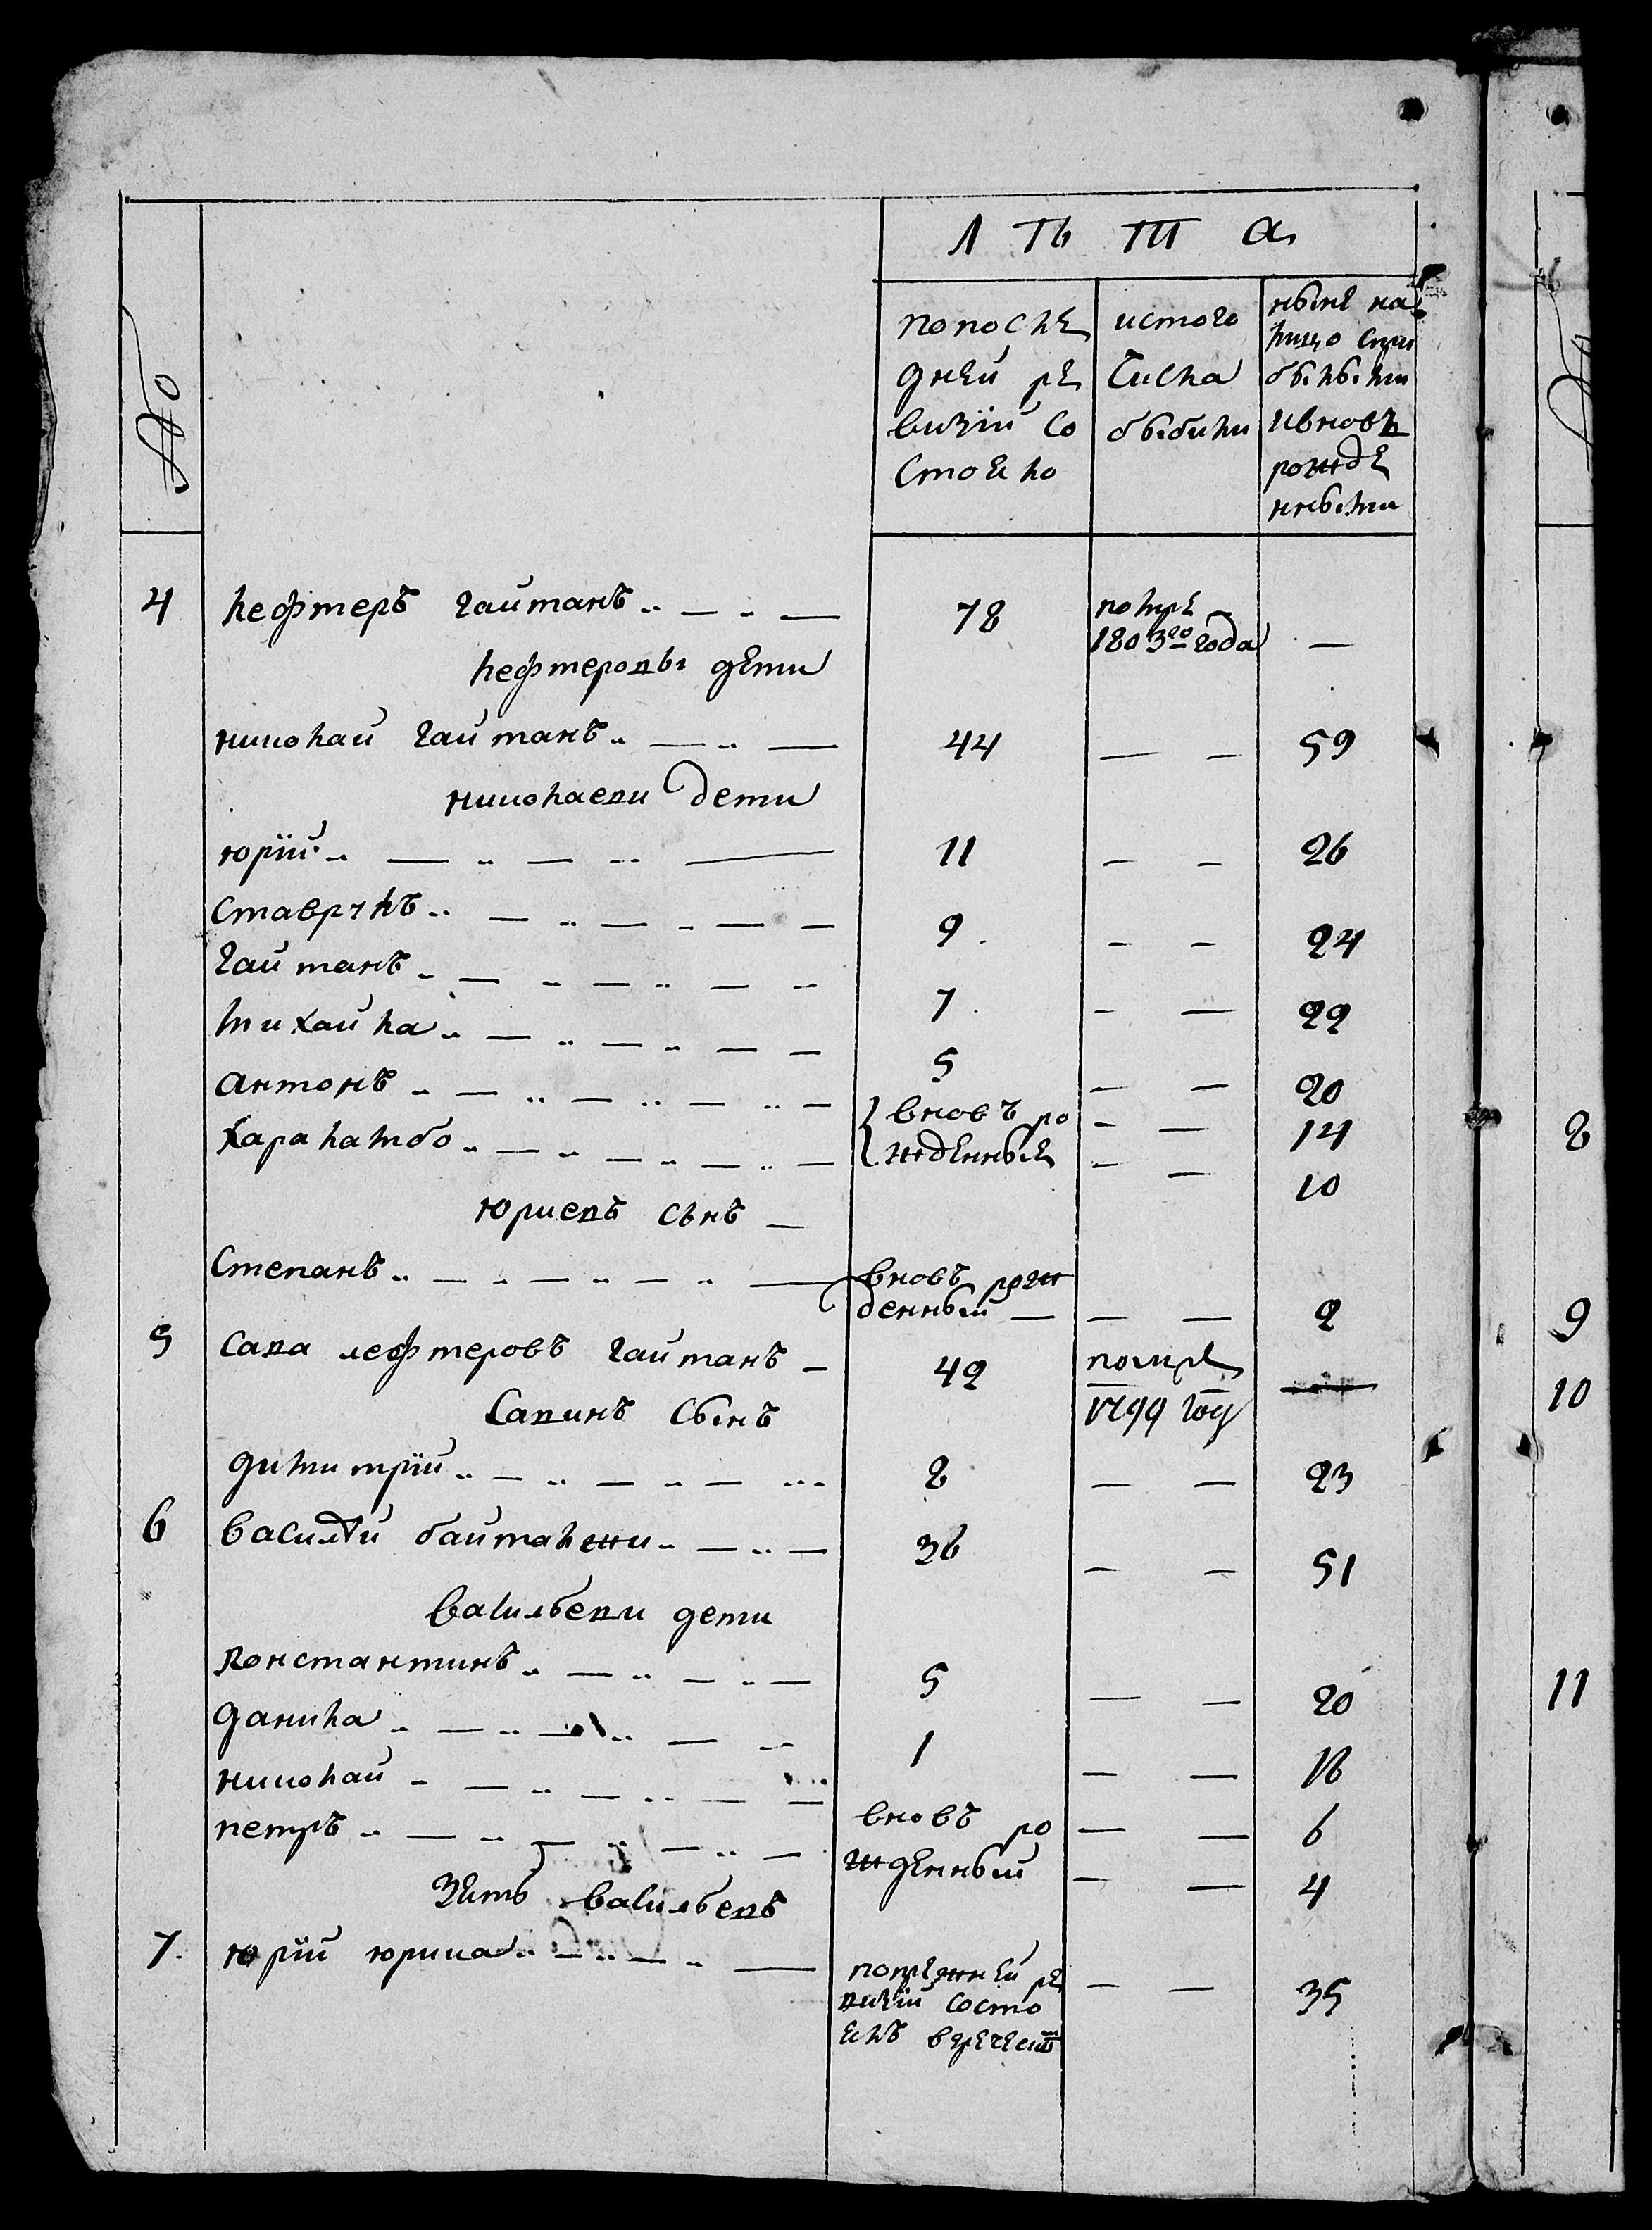 №
Л Ѣ Т А
по после
дней ре
визіи со
стояло
ис того
числа
выбыли
ныне на
лицо
и вновь
рожде
нными
4 лефтеръ гайтанъ 78 помре 1803го года —
лефтеровы дети
николай гайтанъ 44 — — 59
николаеви дети
юрий 11 — — 26
ставрикъ 9 — — 24
гайтанъ 7 — — 22
михайла 5 — — 20
антонъ вновъ ро — — 14
харалампо жденные — — 10
юриевъ сынъ —
степанъ вновъ рож
денный — — — 2
5 сава лефтеровъ гайтанъ — 42 помре —
1799 году
савинъ сынъ
димитрій 8 — — 23
6 василий байталжи 36 — — 51
васильеви дети
константинъ 5 — — 20
данила 1 — — 16
николай вновъ ро — — 6
петръ жденный — — 4
зять васильевъ
7. юрий юрица попрежней ре — — 35
визіи состо
ялъ
8
9
10
11